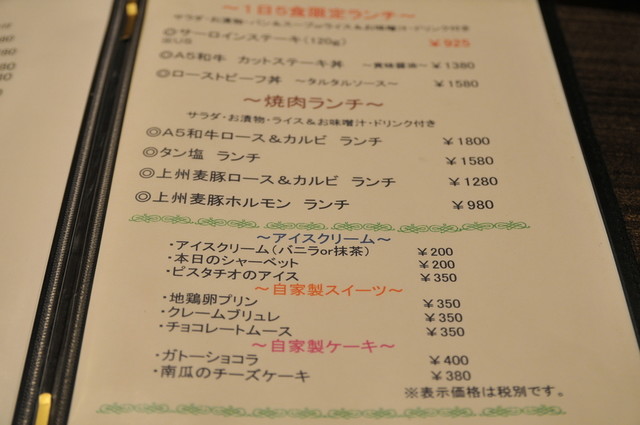 ～1日5食限定ランチ～
サラダ・お漬物・パン＆スープorライス＆お味噌汁・ドリンク付き
◎サーロインステーキ(120g) ￥925
◎A5和牛 カットステーキ丼 ～賞味醤油～ ￥1380
◎ローストビーフ丼 ～タルタルソース～ ￥1580
～焼肉ランチ～
サラダ・お漬物・ライス＆お味噌汁・ドリンク付き
◎A5和牛ロース＆カルビ ランチ ￥1800
◎タン塩 ランチ ￥1580
◎上州麦豚ロース＆カルビ ランチ ￥1280
◎上州麦豚ホルモン ランチ ￥980
～アイスクリーム～
・アイスクリーム(バニラor抹茶) ￥200
・本日のシャーベット ￥200
・ピスタチオのアイス ￥350
～自家製スイーツ～
・地鶏卵プリン ￥350
・クレームブリュレ ￥350
・チョコレートムース ￥350
～自家製ケーキ～
・ガトーショコラ ￥400
・南瓜のチーズケーキ ￥380
※表示価格は税別です。